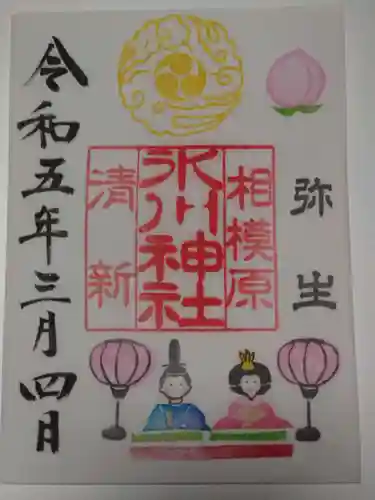 弥生
相模原
氷川神社
清新
令和五年三月四月